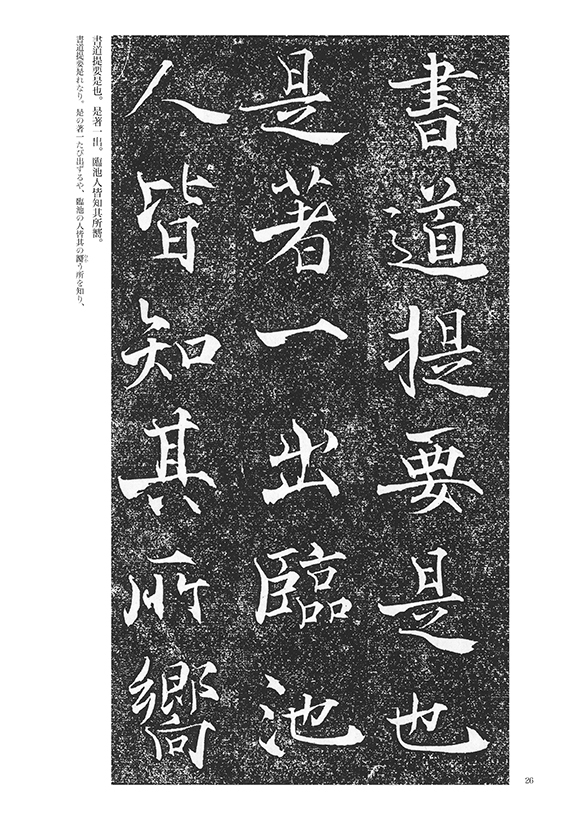 書道提要是也
是著一出臨池
人皆知其所嚮
書道提要是也。是著一出。臨池人皆知其所嚮。
書道提要是れなり。是の著一たび出ずるや、臨池の人皆其の嚮う所を知り、
26